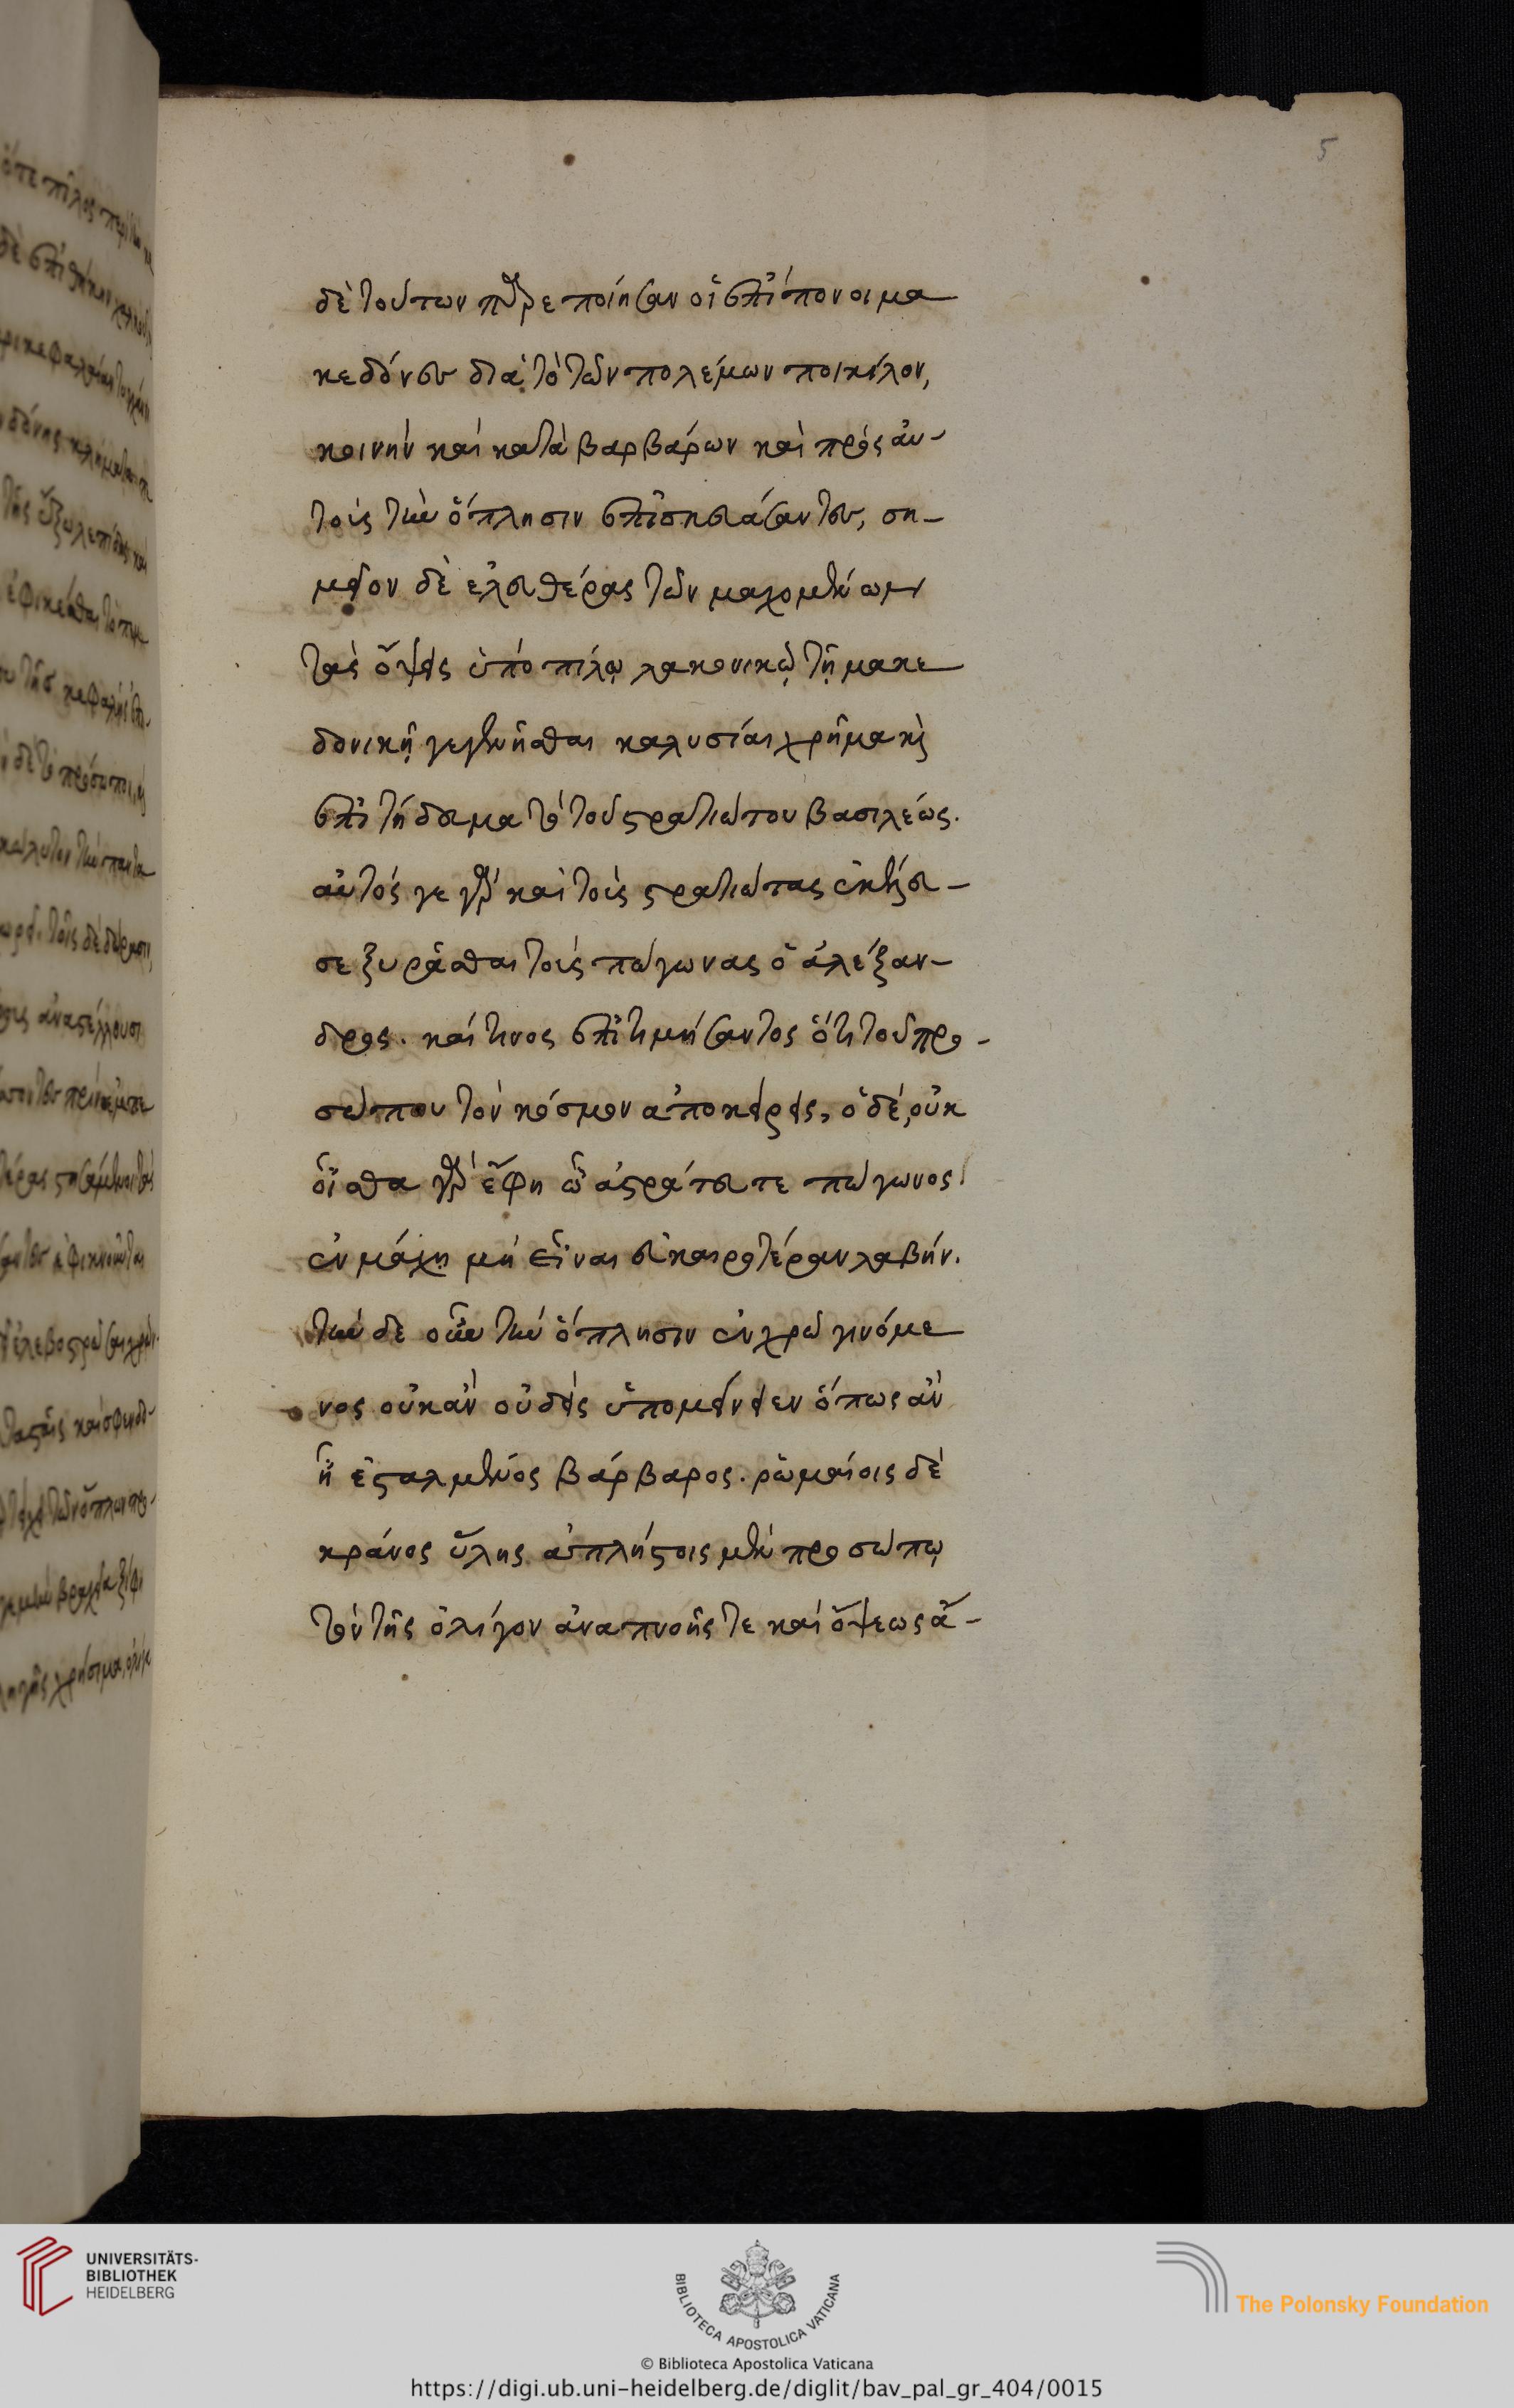 δὲ τούτων παρεποίησαν οἱ ἐπίπονοι μα
κεδόνες διὰ τὸ τῶν πολέμων ποικίλον,
κοινὴν καὶ κατὰ βαρβάρων καὶ πρὸς αὐ-
τοὺς τὴν ὅπλησιν ἐπισκευάσαντες, ση-
μεῖον δὲ ἐλευθέρας τῶν μαχομένων
τὰς ὄψεις ὑπὸ πίλῳ λακονικῷ τῇ μακε
δονικῇ γεγενῆσθαι καλυσίαι χρῆμα καὶ
ἐπιτήδευμα τὸ τοῦ στρατιώτου βασιλέως.
αὐτός γε γὰρ καὶ τοὺς στρατιώτας ἐκέλευ-
σε ξυρᾶσθαι τοὺς πώγωνας ὁ ἀλέξαν-
δρος. καί τινος ἐπιτιμήσαντος ὅτι τοῦ προ-
σώπου τὸν κόσμον ἀποκείρεις, ὁ δέ, οὐκ
οἶσθα γὰρ ἔφη ὦ ἀστράτευτε πώγωνος
ἐν μάχῃ μὴ εἶναι εὐκαιροτέραν λαβήν.
τὴν δε οὖν τὴν ὅπλησιν ἐν χρῷ γινόμε
νος οὐκ ἂν οὐδεὶς ὑπομείνειεν ὅπως ἂν
ᾖ ἐσταλμένος βάρβαρος. ῥωμαίοις δὲ
κράνος ὕλης ἀπλήστοις μὲν προσώπῳ
τὸν τῆς ὀλίγον ἀναπνοῆς τε καὶ ὄψεως ἄ-
5
UNIVERSITÄTS-
BIBLIOTHEK
HEIDELBERG
BIBLIOTECA APOSTOLICA VATICANA
The Polonsky Foundation
© Biblioteca Apostolica Vaticana
https://digi.ub.uni-heidelberg.de/diglit/bav_pal_gr_404/0015